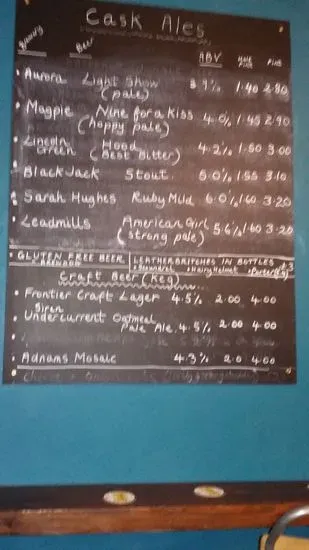 Cask Ales
Brewery Beer ABV Half Pint Pint
Aurora Light Show 3.9% 1.40 2.80
(pale)
Magpie Nine for a Kiss 4.0% 1.45 2.90
(hoppy pale)
Lincoln Green Hood 4.2% 1.50 3.00
(Best Bitter)
Black Jack Stout 5.0% 1.55 3.10
Sarah Hughes Ruby Mild 6.0% 1.60 3.20
Leadmills American Girl 5.6% 1.60 3.20
(strong pale)
GLUTEN FREE BEER LEATHERBRITCHES IN BOTTLES
Hairy Helmet
Craft Beer (Keg)
Frontier Craft Lager 4.5% 2.00 4.00
Siren
Undercurrent Oatmeal
Pale Ale 4.5% 2.00 4.00
Adnams Mosaic 4.3% 2.0 4.00